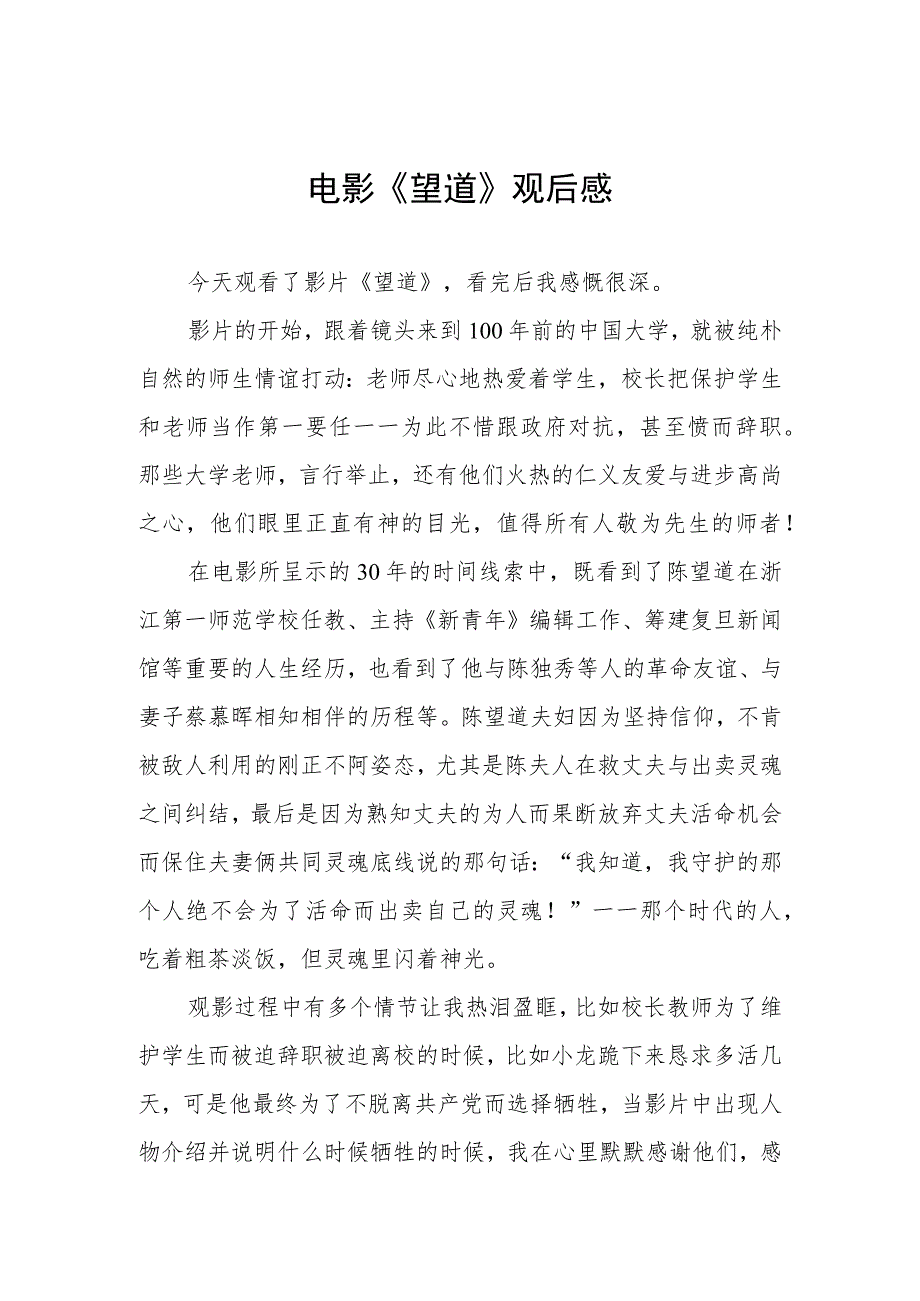 电影《望道》观后感
今天观看了影片《望道》，看完后我感慨很深。
影片的开始，跟着镜头来到100年前的中国大学，就被纯朴
自然的师生情谊打动：老师尽心地热爱着学生，校长把保护学生
和老师当作第一要任一一为此不惜跟政府对抗，甚至愤而辞职。
那些大学老师，言行举止，还有他们火热的仁义友爱与进步高尚
之心，他们眼里正直有神的目光，值得所有人敬为先生的师者！
在电影所呈示的30年的时间线索中，既看到了陈望道在浙
江第一师范学校任教、主持《新青年》编辑工作、筹建复旦新闻
馆等重要的人生经历，也看到了他与陈独秀等人的革命友谊、与
妻子蔡慕晖相知相伴的历程等。陈望道夫妇因为坚持信仰，不肯
被敌人利用的刚正不阿姿态，尤其是陈夫人在救丈夫与出卖灵魂
之间纠结，最后是因为熟知丈夫的为人而果断放弃丈夫活命机会
而保住夫妻俩共同灵魂底线说的那句话：“我知道，我守护的那
个人绝不会为了活命而出卖自己的灵魂！”一一那个时代的人，
吃着粗茶淡饭，但灵魂里闪着神光。
观影过程中有多个情节让我热泪盈眶，比如校长教师为了维
护学生而被迫辞职被迫离校的时候，比如小龙跪下来恳求多活几
天，可是他最终为了不脱离共产党而选择牺牲，当影片中出现人
物介绍并说明什么时候牺牲的时候，我在心里默默感谢他们，感